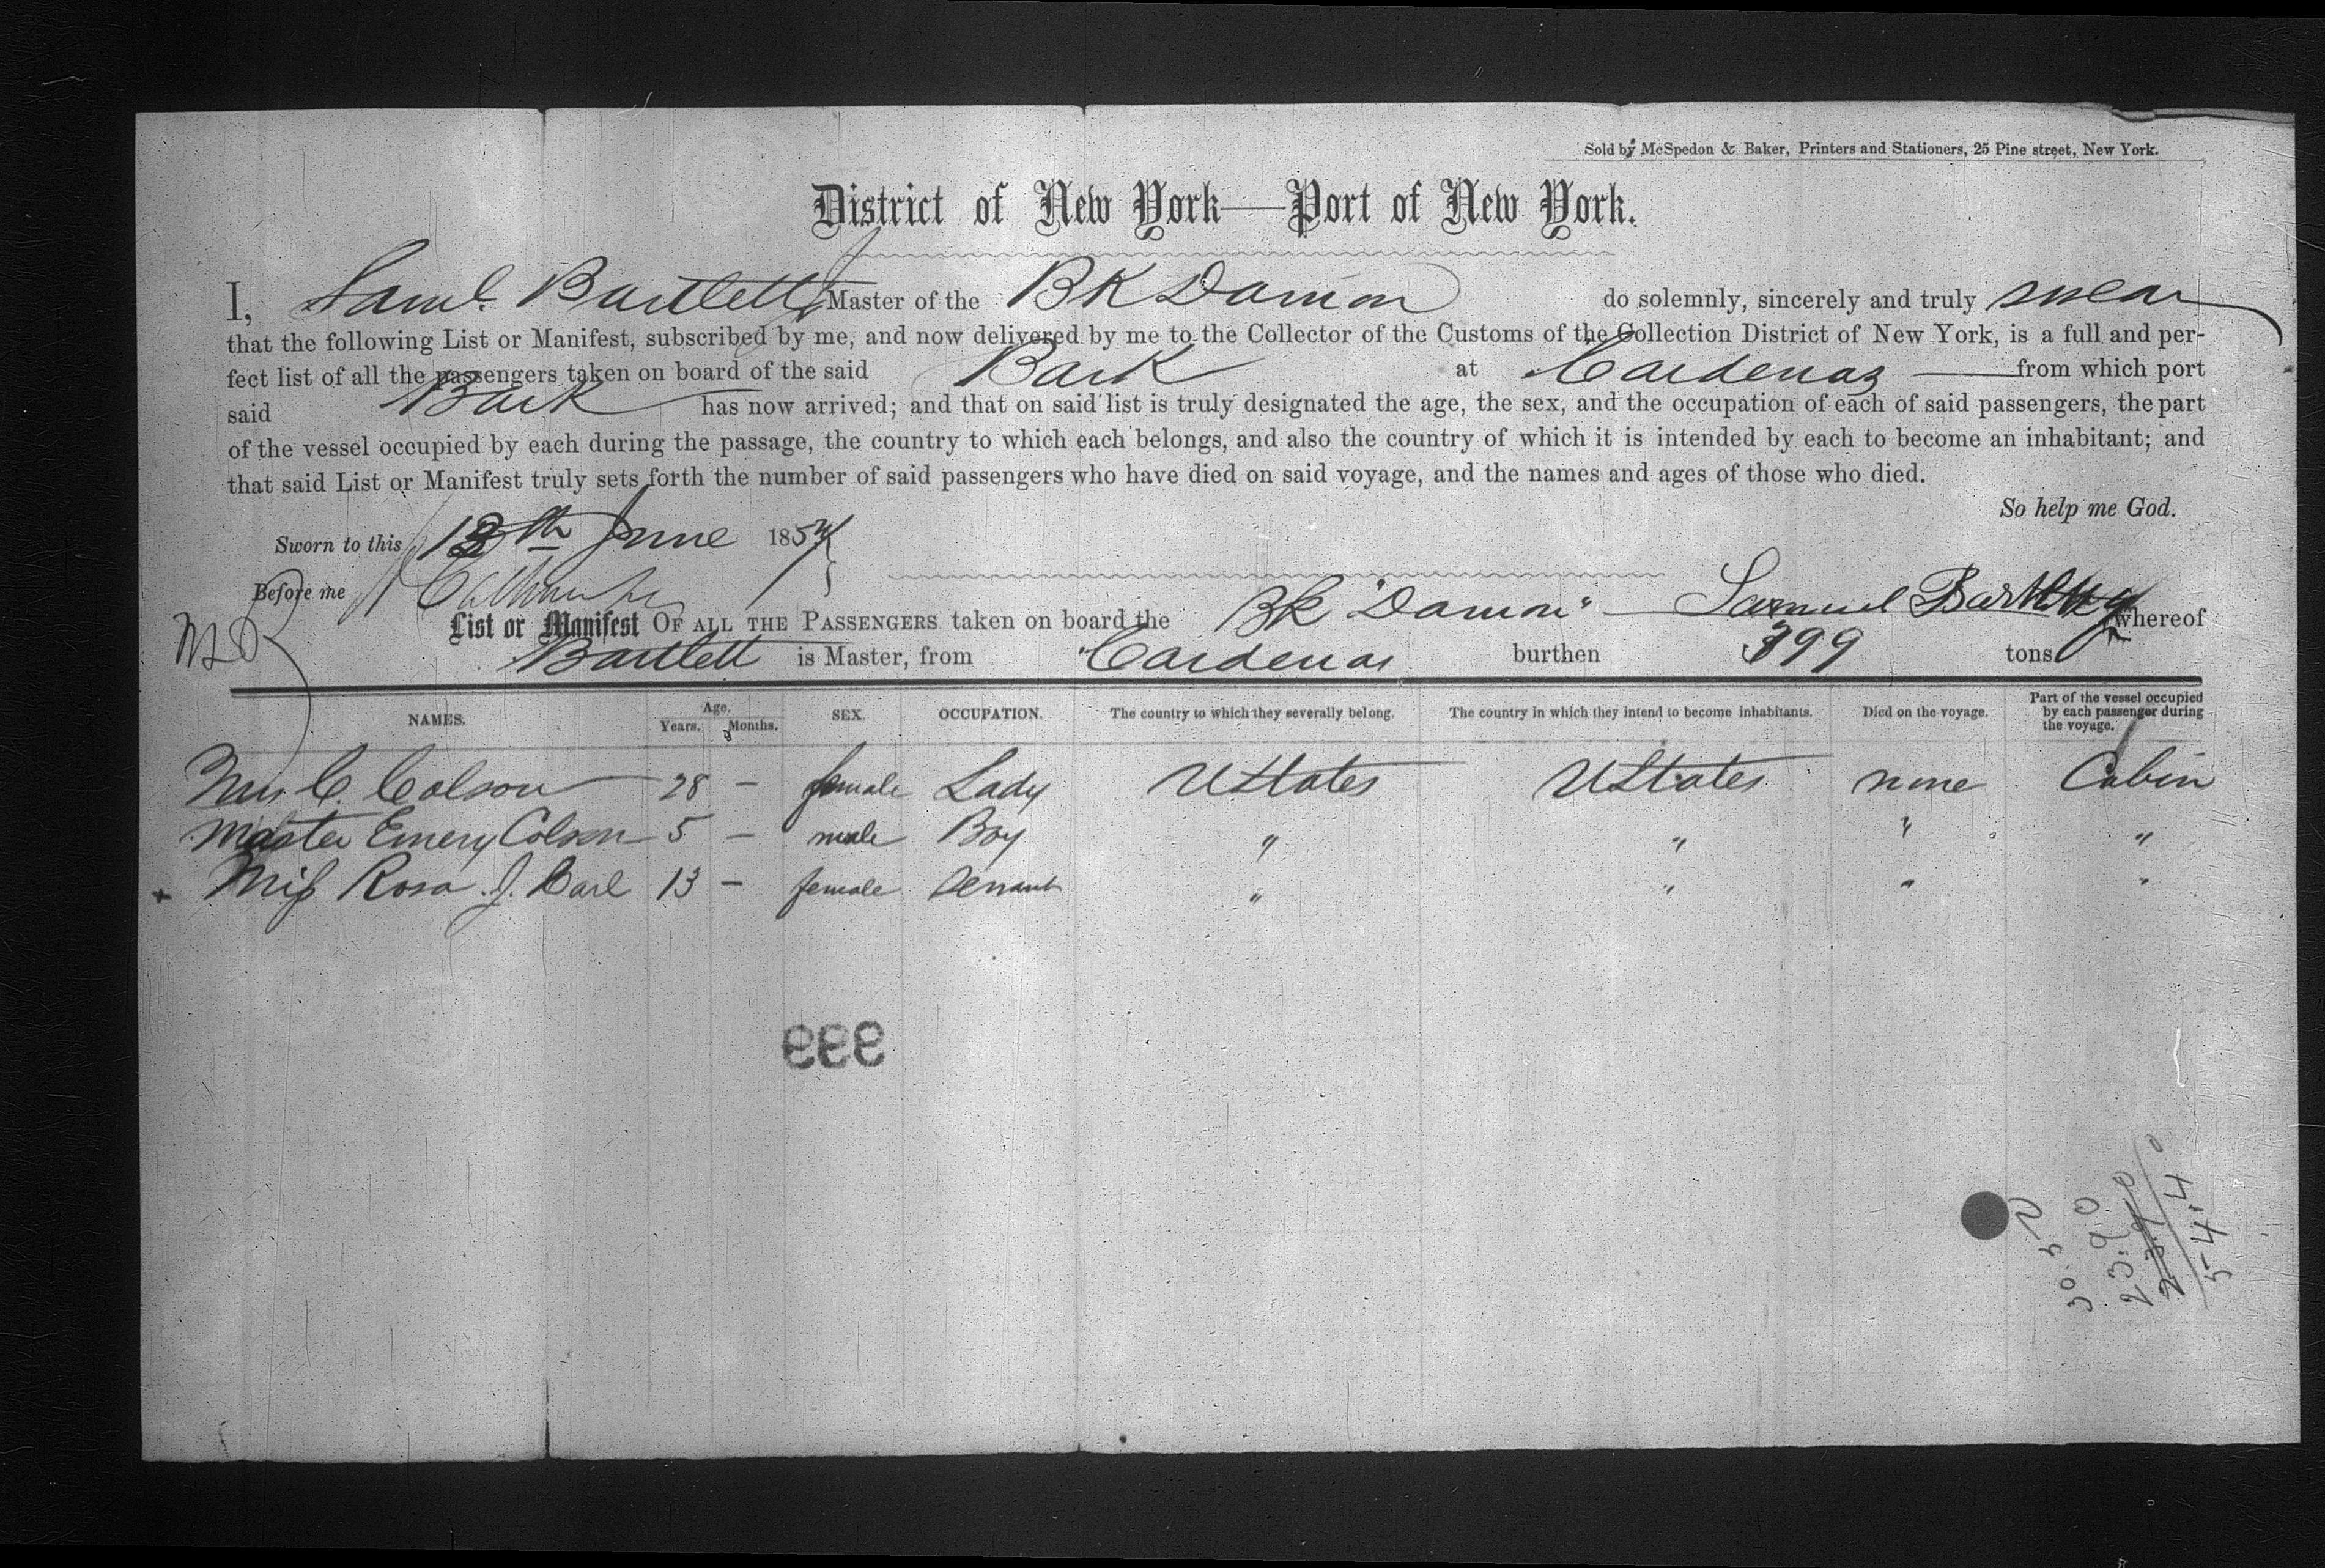 Sold by McSpedon & Baker, Printers and Stationers, 25 Pine street, New York.
District of New York—Port of New York.
I, Saml. Bartlett Master of the BK Damon do solemnly, sincerely and truly swear
that the following List or Manifest, subscribed by me, and now delivered by me to the Collector of the Customs of the Collection District of New York, is a full and per-
fect list of all the passengers taken on board of the said Bark at Cardenas from which port
said Bark has now arrived; and that on said list is truly designated the age, the sex, and the occupation of each of said passengers, the part
of the vessel occupied by each during the passage, the country to which each belongs, and also the country of which it is intended by each to become an inhabitant; and
that said List or Manifest truly sets forth the number of said passengers who have died on said voyage, and the names and ages of those who died.
So help me God.
Sworn to this th June 185
Before me
List or Manifest OF ALL THE PASSENGERS taken on board the Bk "Damon" Samuel Bartlett whereof
Bartlett is Master, from Cardenas burthen 399 tons
NAMES. Age. Years. Months. SEX. OCCUPATION. The country to which they severally belong. The country in which they intend to become inhabitants. Died on the voyage. Part of the vessel occupied by each passenger during the voyage.
Mrs C. Colson 28 – female Lady UStates UStates none Cabin
Master Emery Colson 5 – male Boy " " " "
+ Miss Rosa J. Carl 13 – female Servant " " " "
999
23.9.0
23.9.0
54.4